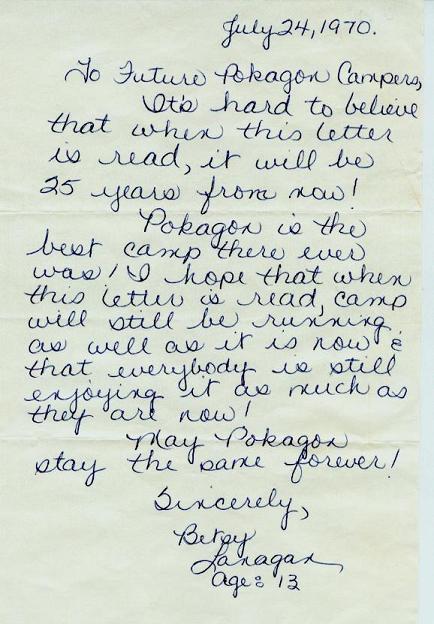 July 24, 1970.
To Future Pokagon Campers,
It's hard to believe
that when this letter
is read, it will be
25 years from now!
Pokagon is the
best camp there ever
was! I hope that when
this letter is read, camp
will still be running
as well as it is now &
that everybody is still
enjoying it as much as
they are now!
May Pokagon
stay the same forever!
Sincerely,
Betsy
Lanagan
Age: 13